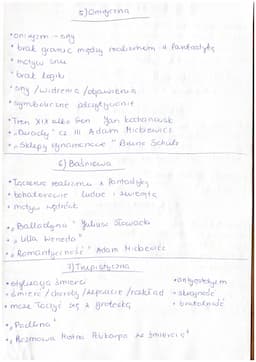 5) Oniryczna
• oniryzm → sny
• brak granic między realizmem a fantastyką
• motyw snu
• brak logiki
• sny / widzenia / objawienia
• symboliczne
• Tren XIX albo Sen Jan Kochanowski
• „Dziady" cz III Adam Mickiewicz
• „Sklepy cynamonowe" Bruno Schulz
6) Baśniowa
• Łączenie realizmu z fantastyką
• bohaterowie ludzie i zwierzęta
• motyw wędrówki
• „Balladyna" Juliusz Słowacki
• „Lilla Weneda"
• „Romantyczność" Adam Mickiewicz
7) Turpistyczna
• stylizacja śmierci
• śmierć / choroby / zepsucie / rozkład
• może łączyć się z groteską
• antyestetyzm
• brutalność
• „Padlina"
• „Rozmowa Mistrza Polikarpa ze śmiercią"